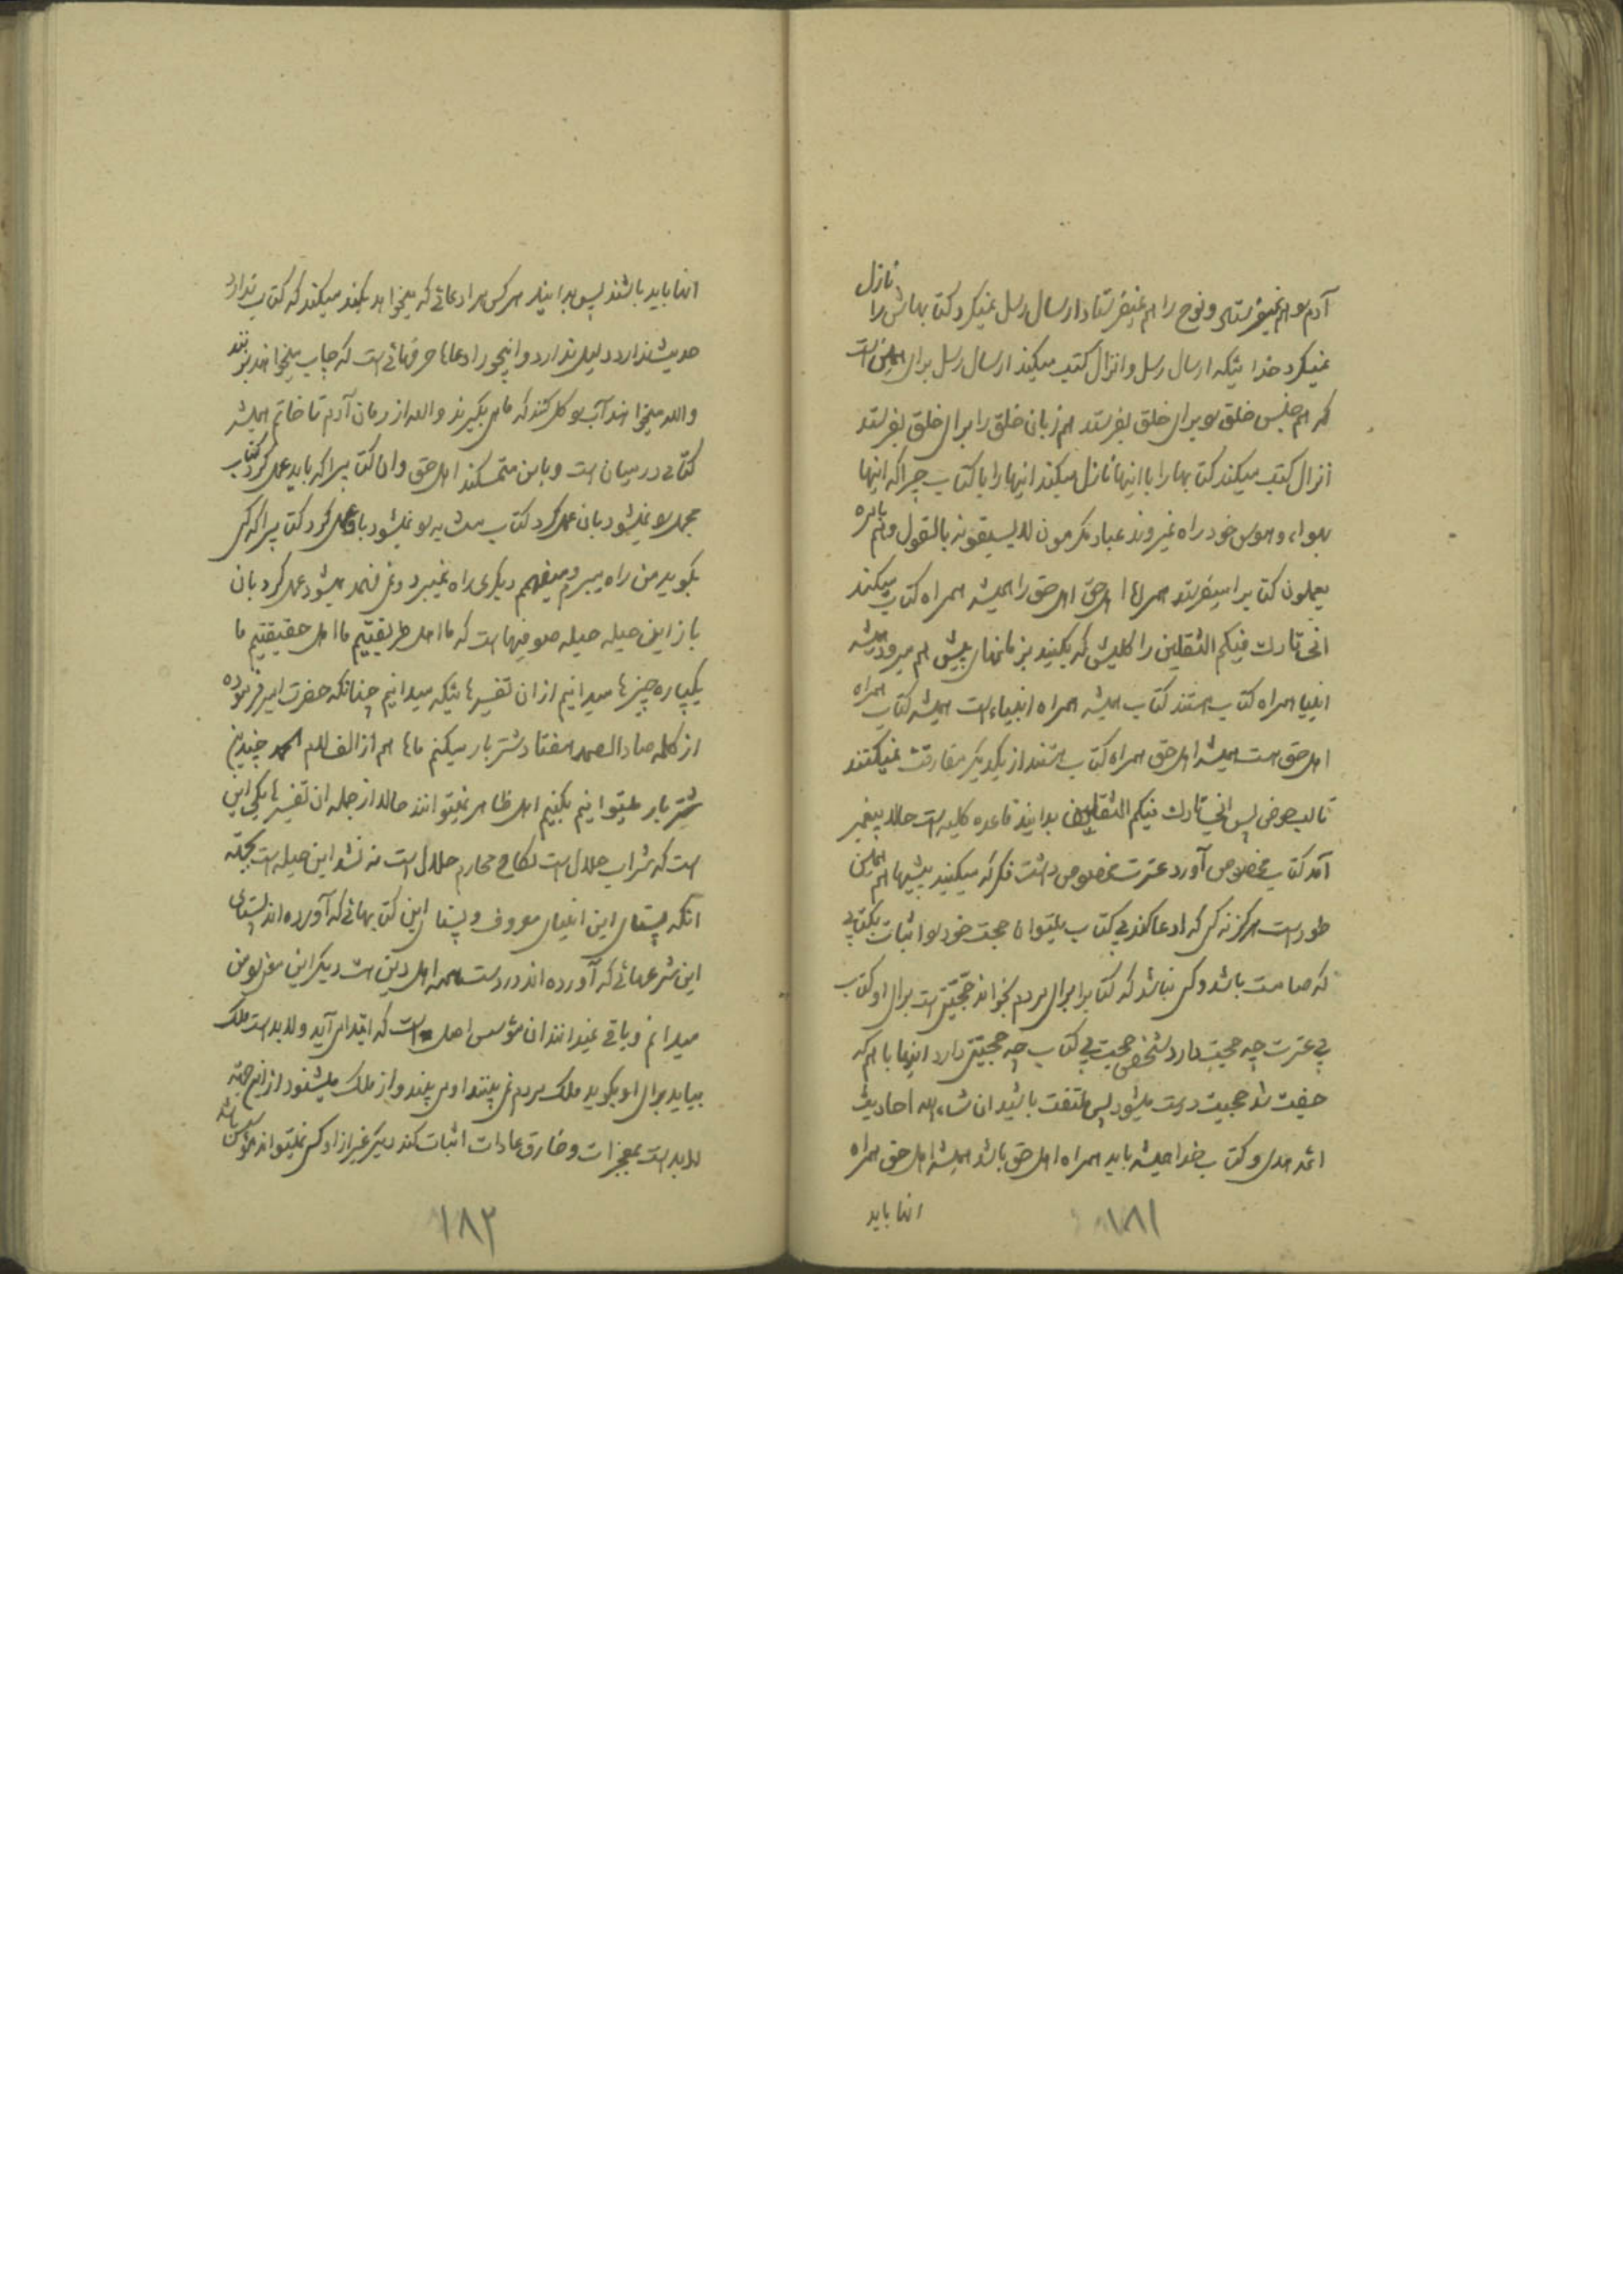 آدم را هم نمیفرستاد و نوح را هم نمیفرستاد ارسال رسل نمیکرد کتابهاش را نازل
نمیکرد خدائیکه ارسال رسل و انزال کتب میکند ارسال رسل برای همین است
که هم جنس خلق را برای خلق بفرستد هم زبان خلق را برای خلق بفرستد
انزال کتب میکند کتابها را با اینها نازل میکند اینها را با کتاب چرا که اینها
بهواء و هوس خود راه نمیروند عباد مکرمون لایسبقونه بالقول وهم بامره
یعملون کتاب را میفرستد همراه اهل حق اهل حق را همیشه همراه کتاب میکند
انی تارک فیکم الثقلین را کلیش که بکنید بزمانهای پیش هم میرود همیشه
انبیا همراه کتاب هستند کتاب همیشه همراه انبیاء است همیشه کتاب همراه
اهل حق است همیشه اهل حق همراه کتاب هستند از یکدیگر مفارقت نمیکنند
تا لب حوض پس انی تارک فیکم الثقلین بدانید قاعده کلیه است حالا پیغمبر
آمد کتاب مخصوص آورد عترت مخصوص داشت فکر که میکنید پیشیها هم همین
طور است هرگز نه کسی که ادعا کند بی کتاب میتواند حجت خود را اثبات بکتابی
که صامت باشد و کسی نباشد که کتاب را برای مردم بخواند حجیتی است برای او کتاب
بی عترت چه حجیت دارد شخص حجیت بی کتاب چه حجیتی دارد اینها با هم که
جفت شد حجیت درست میشود پس ملتفت باشید ان شاء الله احادیث
ائمه هدی و کتاب خدا همیشه باید همراه اهل حق باشد همیشه اهل حق همراه
اینها باید
١٨١
اینها باید باشند پس بدانید هرکس هر ادعائی که میخواهد بکند میکند که کتاب ندارد
حدیث ندارد دلیل ندارد و اینجور ادعاها حرفهائی است که چاپ میخواهند بزنند
والله میخواهند آب را گل کنند که ماهی بگیرند والا از زمان آدم تا خاتم همیشه
کتابی در میان است و باین متمسکند اهل حق و آن کتابیرا که باید عمل کرد کتاب
مجمل را نمیشود بان عمل کرد کتاب متشابه را نمیشود باو عمل کرد کتابیرا که کسی
بگوید من راه میبرم و میفهمم دیگری راه نمیبرد و نمی فهمد میشود عمل کرد بان
باز این حیله حیله صوفیها است که ما اهل طریقتیم ما اهل حقیقتیم ما
یکپاره چیزها میدانیم از ان تفسیرهائیکه میدانیم چنانکه حضرت امیر فرموده
از کلمه صاد الصمد هفتاد شتر بار میکنم ماها هم از الف لام الحمد چندین
شتر بار میتوانیم بکنیم اهل ظاهر نمیتوانند حالا از جمله ان تفسیرها یکی این
است که شراب حلال است نکاح محارم حلال است نه نشد این حیله است بجهة
انکه بنای این انبیای معروف و بنای این کتابهائی که آورده اند بنای
این شرعهائی که آورده اند در دست همه اهل دین است دیگر این معنی را من
میدانم و باقی نمیدانند ان مؤسس اصل است که ابتدای آید و لابد است ملک
بیاید برای او بگوید ملک مردم نمی بینند او می بیند و از ملک میشنود از اینجهة
لابد است بمعجزات و خارق عادات اثبات کند دیگر غیر از او کسی نمیتواند مؤسس باشد
١٨٢